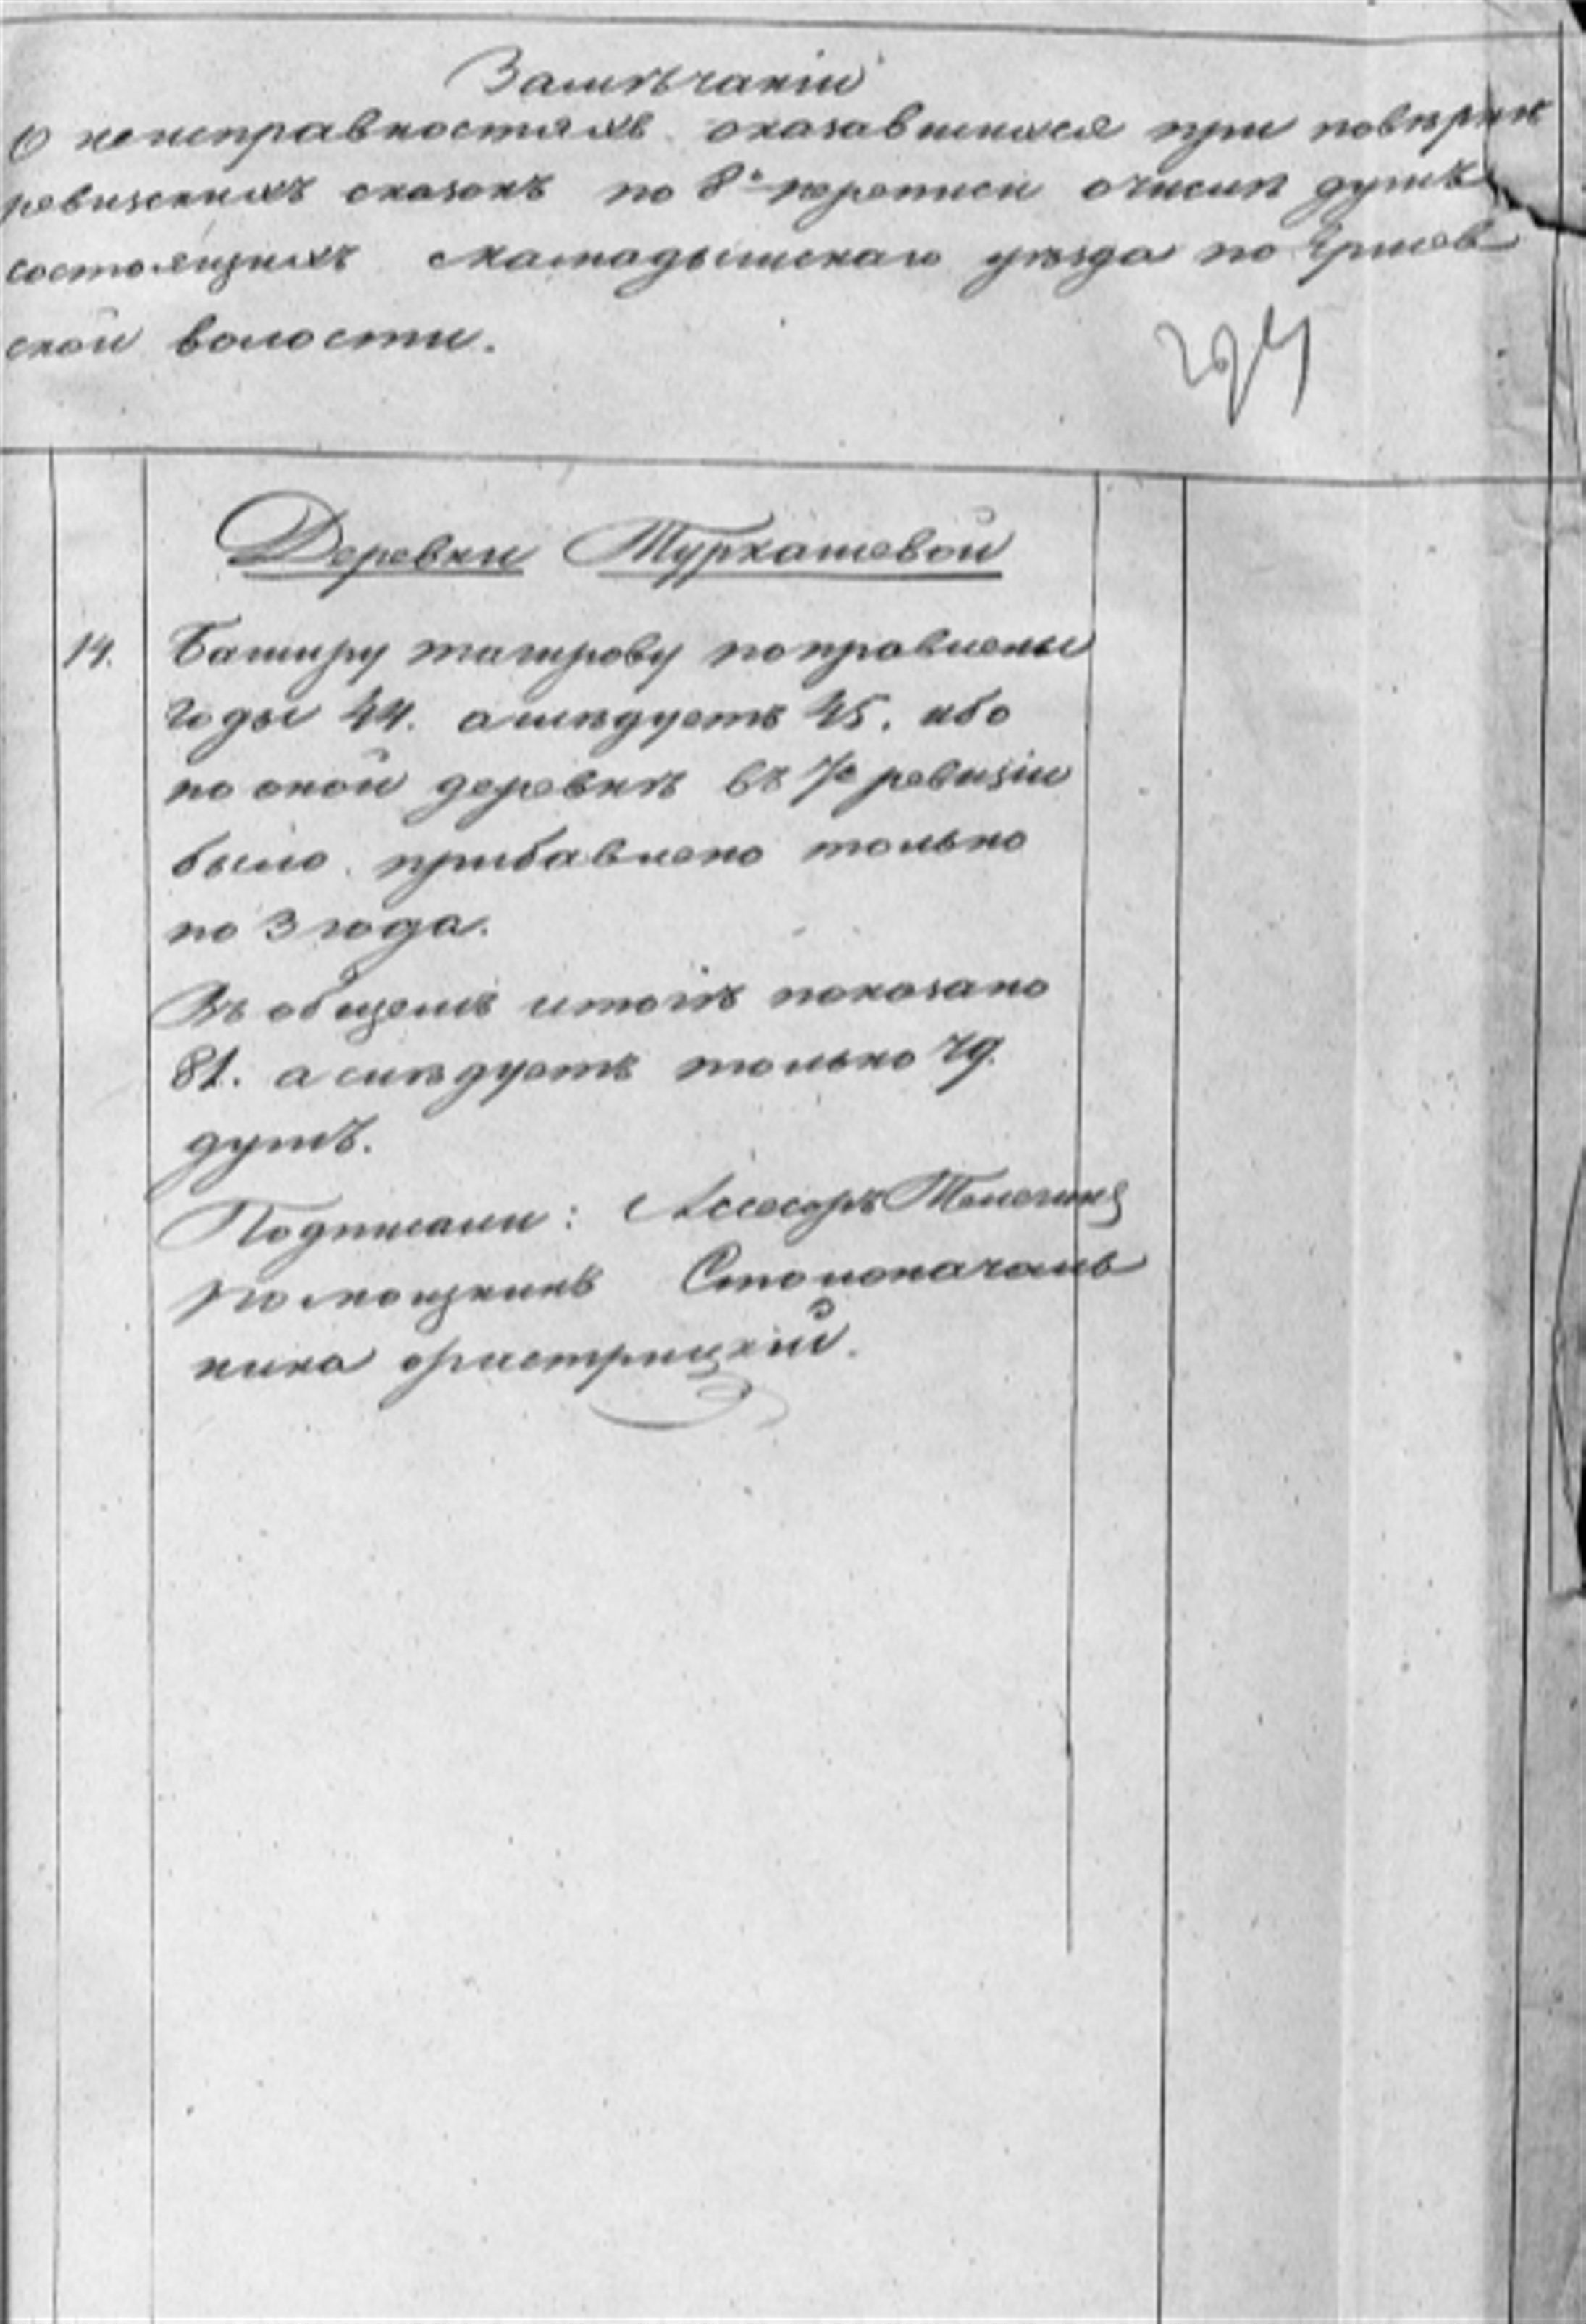 Замѣчаніи
О неисправностяхъ оказавшихся при повѣркѣ
ревизскихъ сказокъ по 8й переписи о числѣ душъ
состоящихъ Мамадышскаго уѣзда по
ской волости.
Деревни Туркашевой
14. Баширу таирову поправлены
годы 44. а слѣдуетъ 45. ибо
по оной деревнѣ въ 7ю ревизіи
было прибавлено только
по 3 года.
Въ общемъ итогѣ показано
81. а слѣдуетъ только 79.
душъ.
Подписали: Ассесоръ
помощникъ Столоначаль
ника